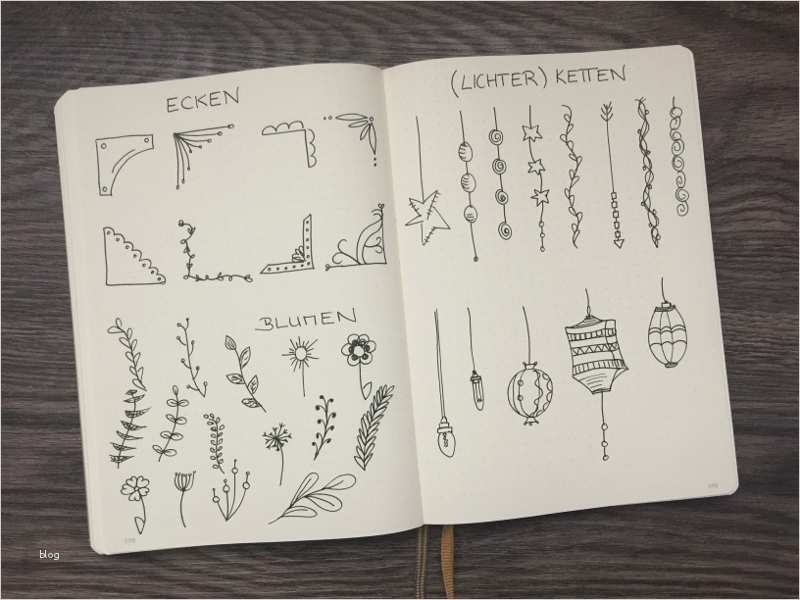 ECKEN
BLUMEN
(LICHTER) KETTEN
blog